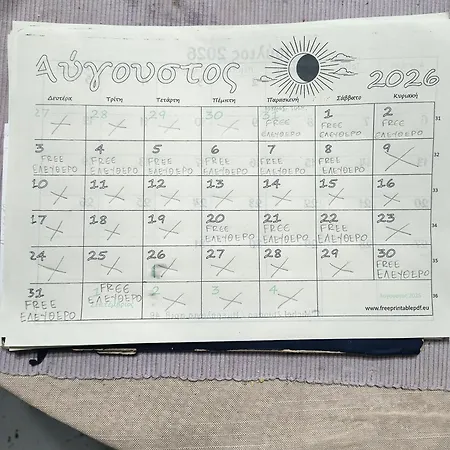 Αύγουστος 2026
Δευτέρα Τρίτη Τετάρτη Πέμπτη Παρασκευή Σάββατο Κυριακή
27 28 29 30 31 1 2 31
FREE FREE FREE
ΕΛΕΥΘΕΡΟ ΕΛΕΥΘΕΡΟ ΕΛΕΥΘΕΡΟ
3 4 5 6 7 8 9 32
FREE FREE FREE FREE FREE FREE
ΕΛΕΥΘΕΡΟ ΕΛΕΥΘΕΡΟ ΕΛΕΥΘΕΡΟ ΕΛΕΥΘΕΡΟ ΕΛΕΥΘΕΡΟ ΕΛΕΥΘΕΡΟ
10 11 12 13 14 15 16 33
17 18 19 20 21 22 23 34
FREE FREE FREE
ΕΛΕΥΘΕΡΟ ΕΛΕΥΘΕΡΟ ΕΛΕΥΘΕΡΟ
24 25 26 27 28 29 30 35
FREE
ΕΛΕΥΘΕΡΟ
31 1 2 3 4 36
FREE FREE
ΕΛΕΥΘΕΡΟ ΕΛΕΥΘΕΡΟ
www.freeprintablepdf.eu